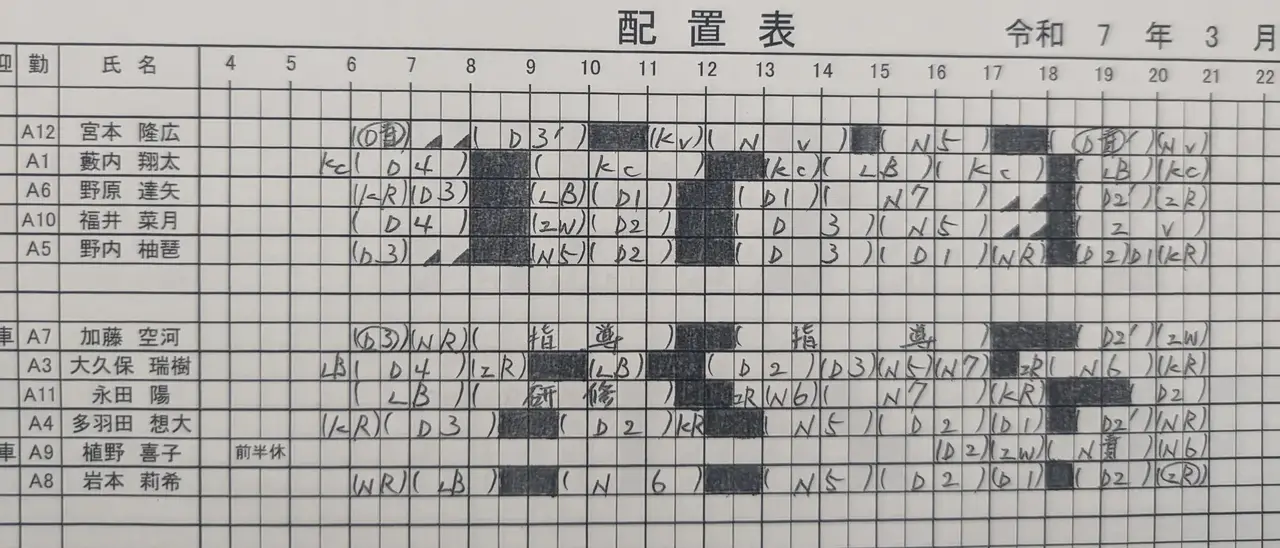 配置表 令和 7 年 3 月
迎 勤 氏名 4 5 6 7 8 9 10 11 12 13 14 15 16 17 18 19 20 21 22
A12 宮本 隆広 (D責) ( D3' ) (Kv) ( N v ) (N5) ( D責' ) (Nv)
A1 藪内 翔太 Kc ( D4 ) ( Kc ) (Kc) ( LB ) ( Kc ) ( LB ) (Kc)
A6 野原 達矢 (KR) (D3) (LB) ( D1 ) ( D1 ) ( N7 ) ( D2' ) (ZR)
A10 福井 菜月 ( D4 ) (ZW) (D2) ( D 3 ) ( N5 ) ( Z v )
A5 野内 柚琶 (D3) (N5) (D2) ( D 3 ) ( D1 ) (NR) (D2) D1 (KR)
車 A7 加藤 空河 (D3) (NR) ( 指 導 ) ( 指 導 ) ( D2' ) (ZW)
A3 大久保 瑞樹 LB ( D4 ) (ZR) (LB) ( D2 ) (D3) (N5) (N7) ZR ( N6 ) (KR)
A11 永田 陽 ( LB ) ( 研 修 ) ZR (N6) ( N7 ) (KR) ( D2 )
A4 多羽田 想大 (KR) ( D3 ) ( D2 ) KR ( N5 ) ( D2 ) (D1) ( D2' ) (NR)
車 A9 植野 喜子 前半休 (D2) (ZW) ( N責 ) (N6)
A8 岩本 莉希 (NR) ( LB ) ( N 6 ) ( N5 ) ( D2 ) (D1) ( D2 ) (ZR)